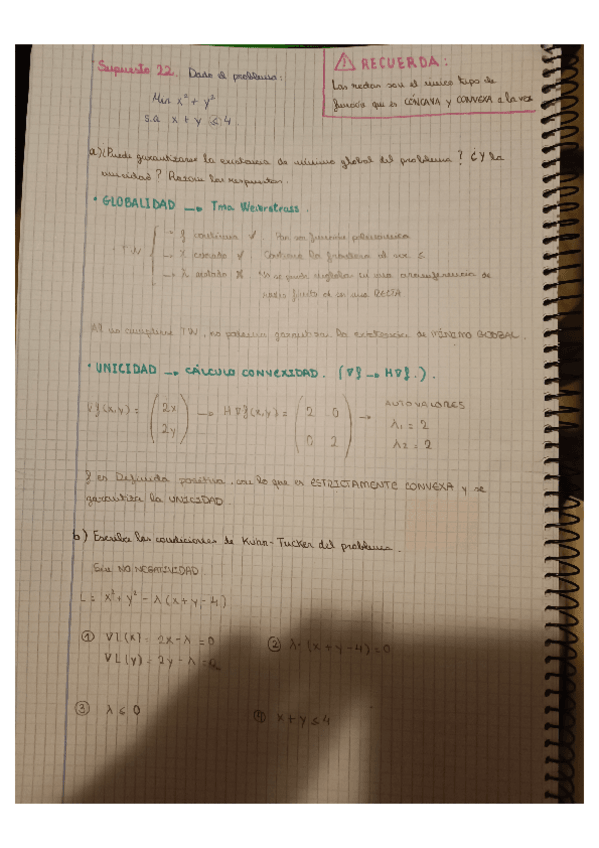 Supuesto 22. Dado el problema:
Min x² + y²
s.a x + y ≤ 4.
⚠ RECUERDA:
Las rectas son el único tipo de
función que es CÓNCAVA y CONVEXA a la vez
a) ¿Puede garantizarse la existencia de mínimo global del problema? ¿Y la
unicidad? Razone las respuestas.
• GLOBALIDAD → Tma Weierstrass.
TW
→ f continua ✓. Por ser función polinómica
→ X cerrado ✓ Contiene la frontera al ser ≤
→ X acotado ✗ No se puede englobar en una circunferencia de
radio finito al ser una RECTA.
Al no cumplirse TW, no podemos garantizar la existencia de MÍNIMO GLOBAL.
• UNICIDAD → CÁLCULO CONVEXIDAD. (∇f → H∇f.).
∇f(x,y) = (2x 2y) → H∇f(x,y) = (2 0 → AUTOVALORES
0 2) λ1 = 2
λ2 = 2
f es Definida positiva, con lo que es ESTRICTAMENTE CONVEXA y se
garantiza la UNICIDAD.
b) Escriba las condiciones de Kuhn-Tucker del problema.
Sin NO NEGATIVIDAD
L = x² + y² - λ(x + y - 4)
① ∇L(x) = 2x - λ = 0
∇L(y) = 2y - λ = 0
② λ·(x + y - 4) = 0
③ λ ≤ 0
④ x + y ≤ 4